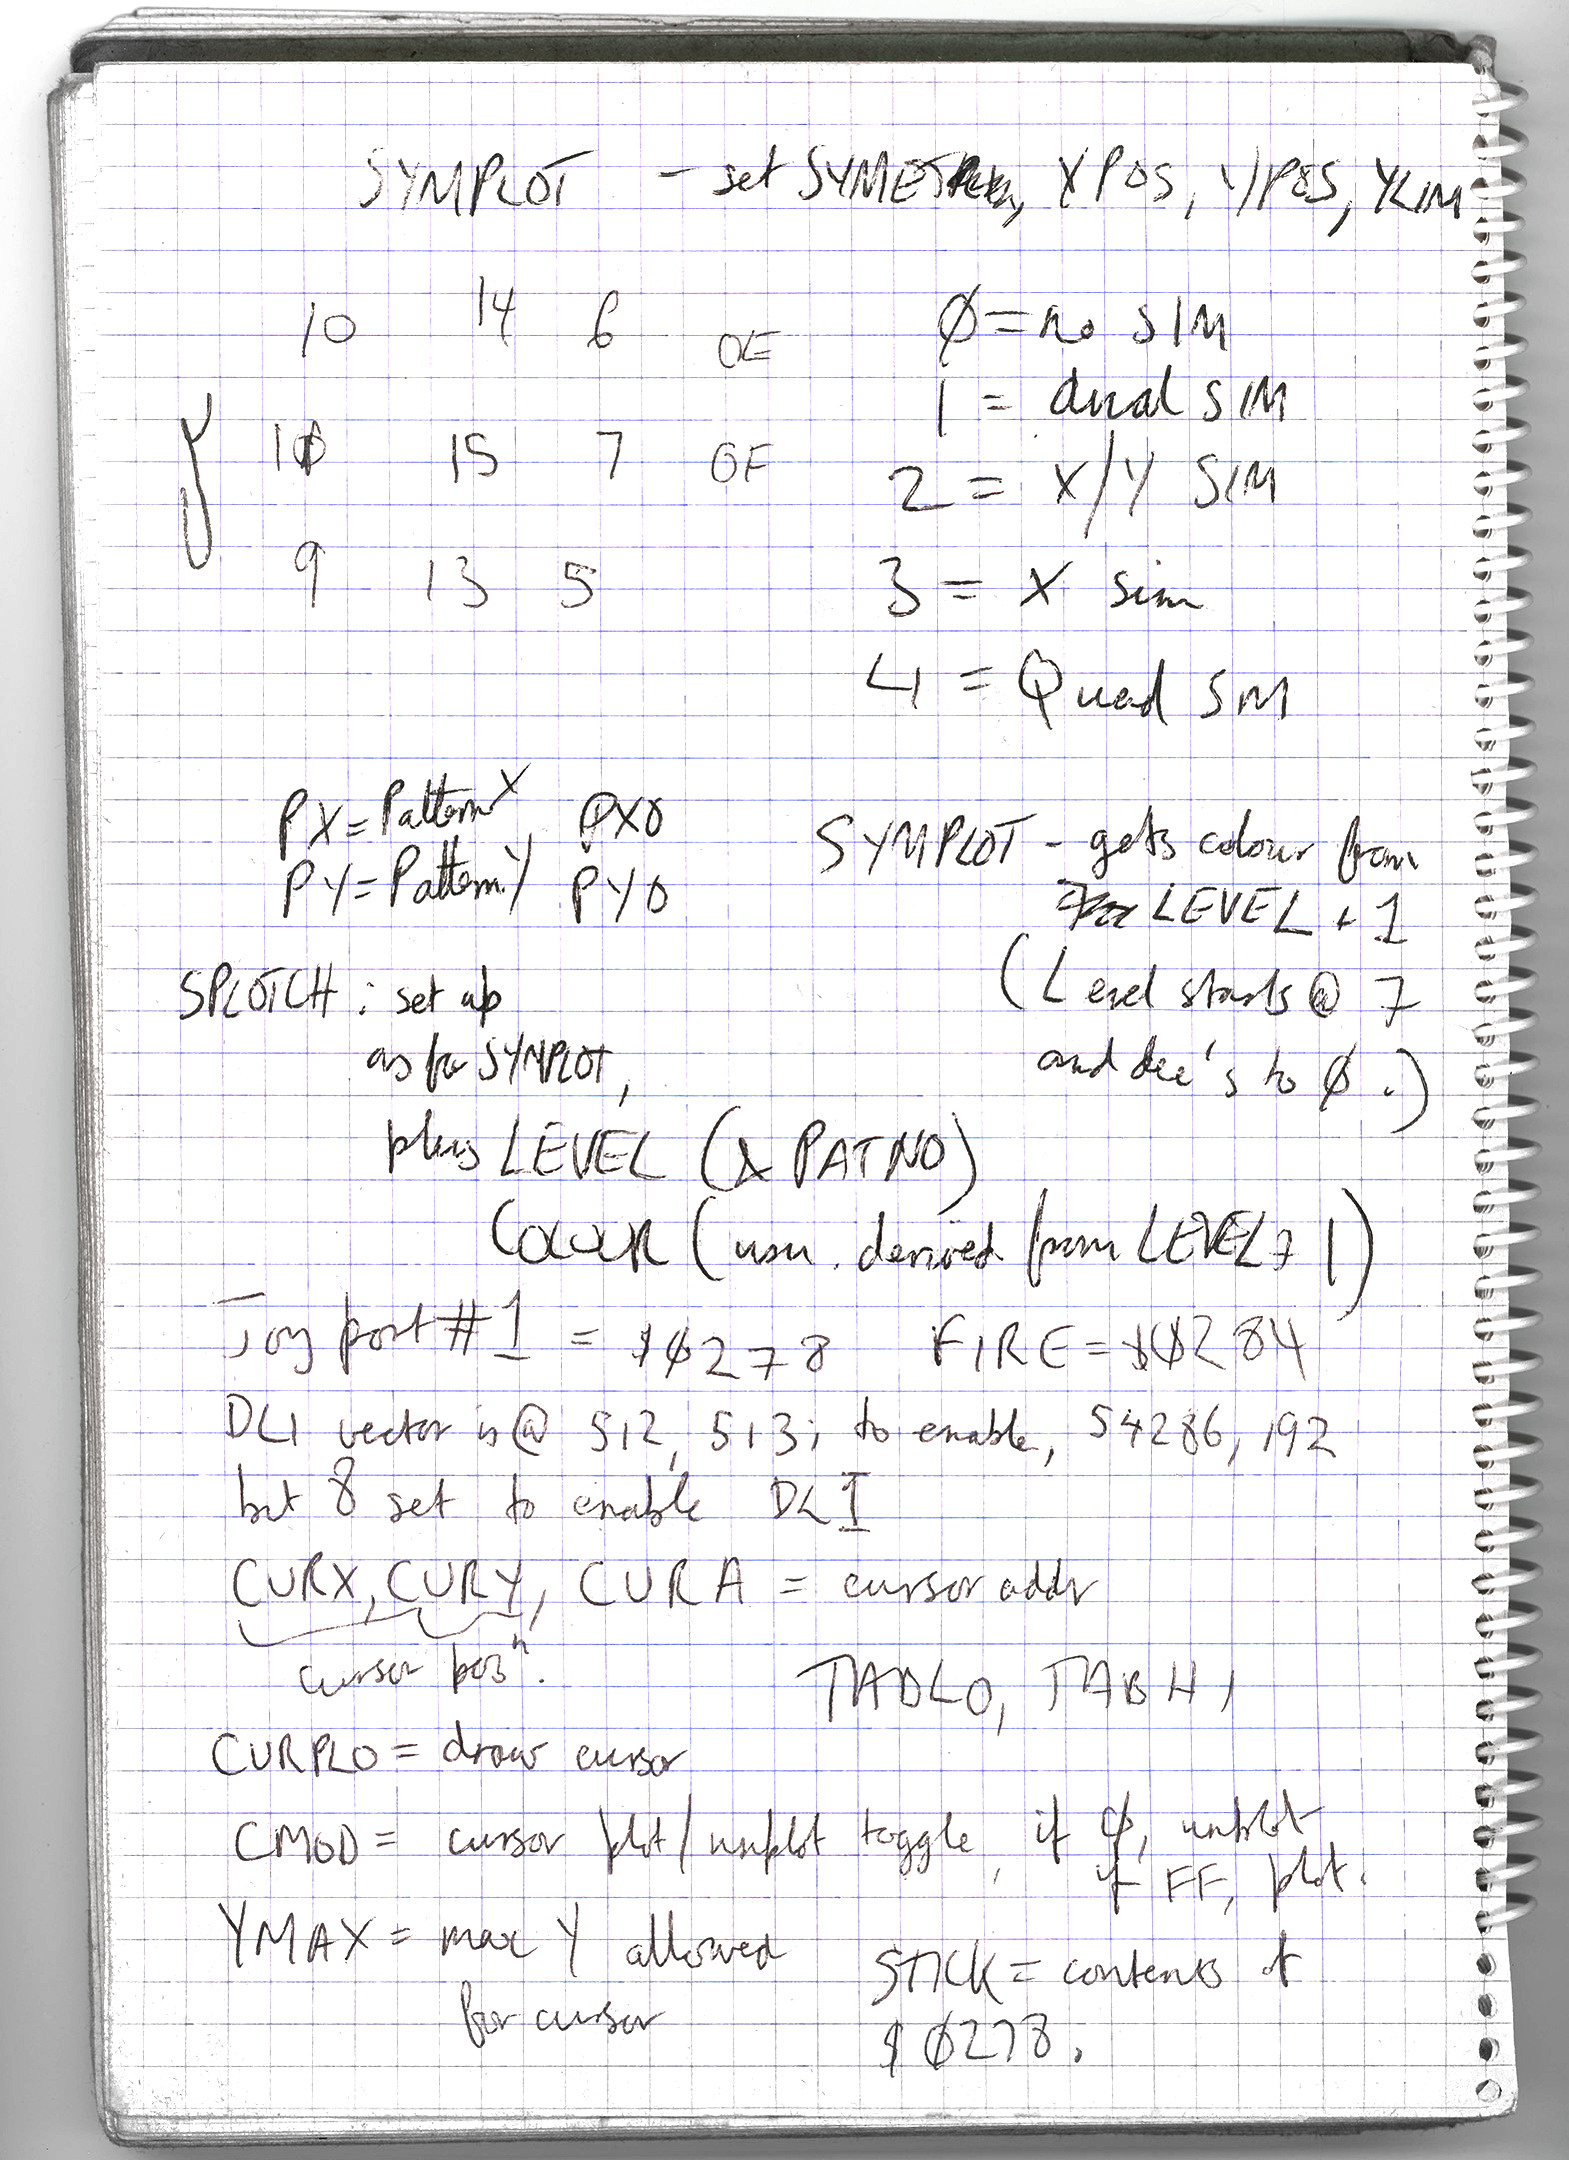 SYMPLOT - set SYMETRY, XPOS, YPOS, YLIM
10 14 6 0E
10 15 7 0F
9 13 5
Ø = no SIM
1 = dual SIM
2 = X/Y SIM
3 = X sim
4 = Quad SIM
PX = PatternX PX0
PY = PatternY PY0
SYMPLOT - gets colour from
LEVEL + 1
(Level starts @ 7
and dec's to Ø.)
SPLOTCH: set up
as for SYMPLOT,
plus LEVEL (& PATNO)
COLOUR (usu. derived from LEVEL + 1)
Joy port #1 = $Ø278 FIRE = $Ø284
DLI vector is @ 512, 513; to enable, 54286, 192
but 8 set to enable DLI
CURX, CURY, CURA = cursor addr
cursor posn.
TADLO, TABHI
CURPLO = draw cursor
CMOD = cursor plot/unplot toggle, if Ø, unplot
if FF, plot.
YMAX = max Y allowed
for cursor
STICK = contents of
$Ø278.